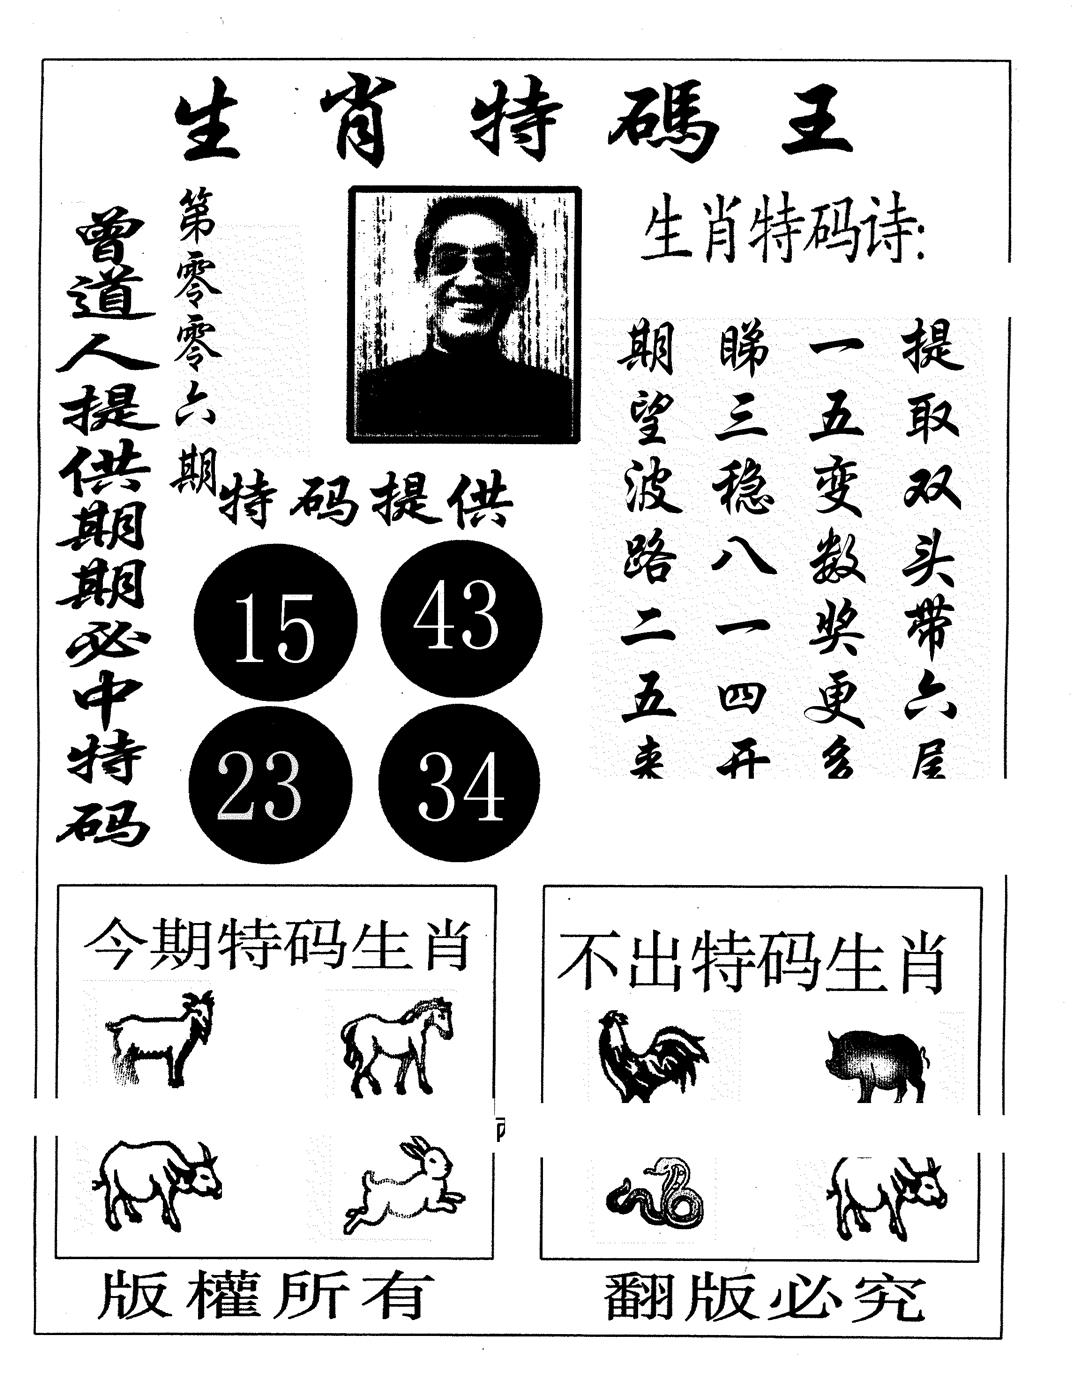 生肖特碼王
曾道人提供期期必中特码
第零零六期
生肖特码诗:
提取双头带六尾
一五变数奖更多
睇三稳八一四开
期望波路二五来
特码提供
15
43
23
34
今期特码生肖
不出特码生肖
版權所有
翻版必究